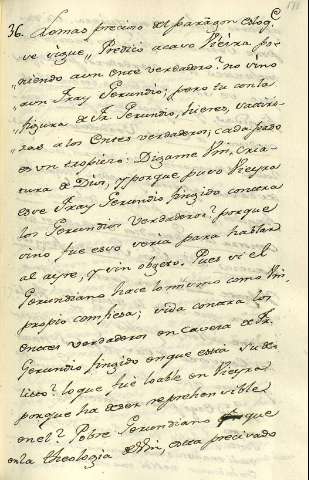 36. Lo mas precioso del paragon es lo q.e
se sigue, Predicó acaso Vieira po-
niendo a un ente verdadero? no sino
a un Fray Gerundio; pero tu con la
figura de Fr. Gerundio, hieres,
a los Entes verdaderos; cada
es un tropiezo: Digame Vm, Cria-
tura de Dios, y porque puso Vieyra
esse Fray Gerundio fingido contra
los Gerundios verdaderos? porque
sino fue esso seria para hablar
al ayre, y sin objeto. Pues si el
Gerundiano hace lo mismo como Vm.
propio confiesa; contra los
entes verdaderos en cavesa de Fr.
Gerundio fingido en que està su de-
licto? lo que fuè loable en Vieyra
porque ha de ser reprehensible
en el? Pobre Gerundiano que
en la theologia de Vm, esta precisado